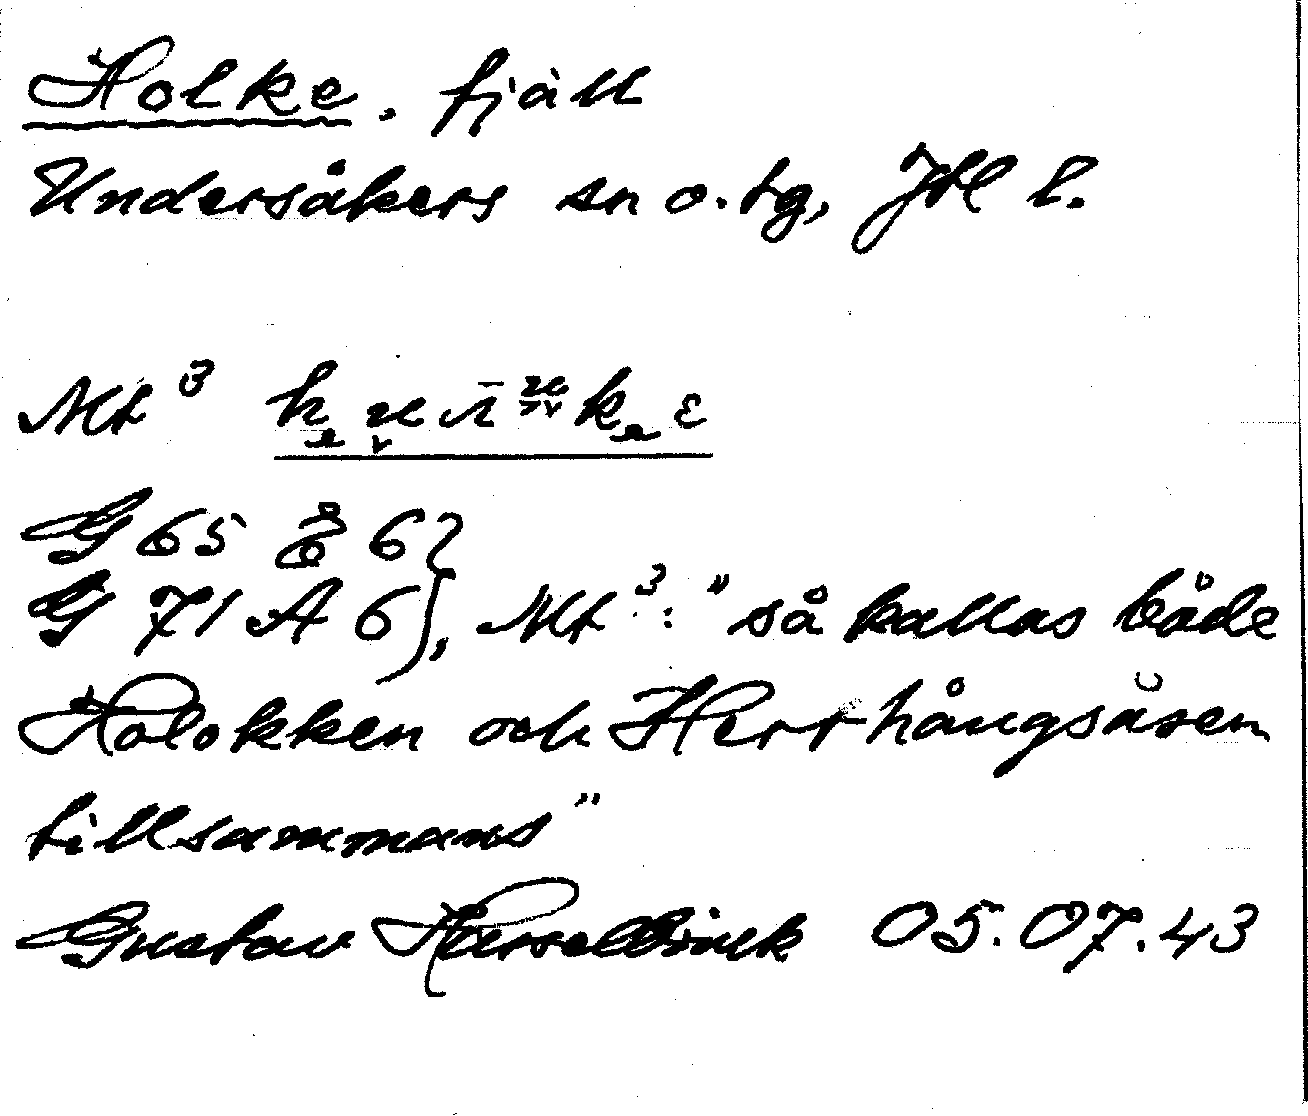 Holke, fjäll
Undersåkers sn o. tg, Jtl l.
Mt 3
G 65 Å 6
G 71 A 6}, Mt 3: "så kallas både
Holokken och Herrhångsåsen
tillsammans"
Gustav Hasselbrink 05.07.43